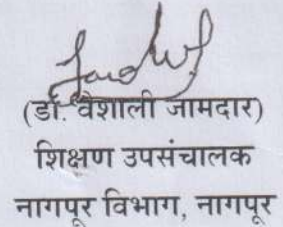 (डॉ. वैशाली जामदार)
शिक्षण उपसंचालक
नागपूर विभाग, नागपूर